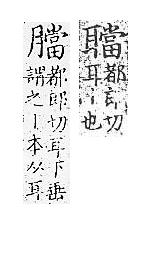 都郎切
耳丨也
都郎切耳下垂
謂之丨本从耳